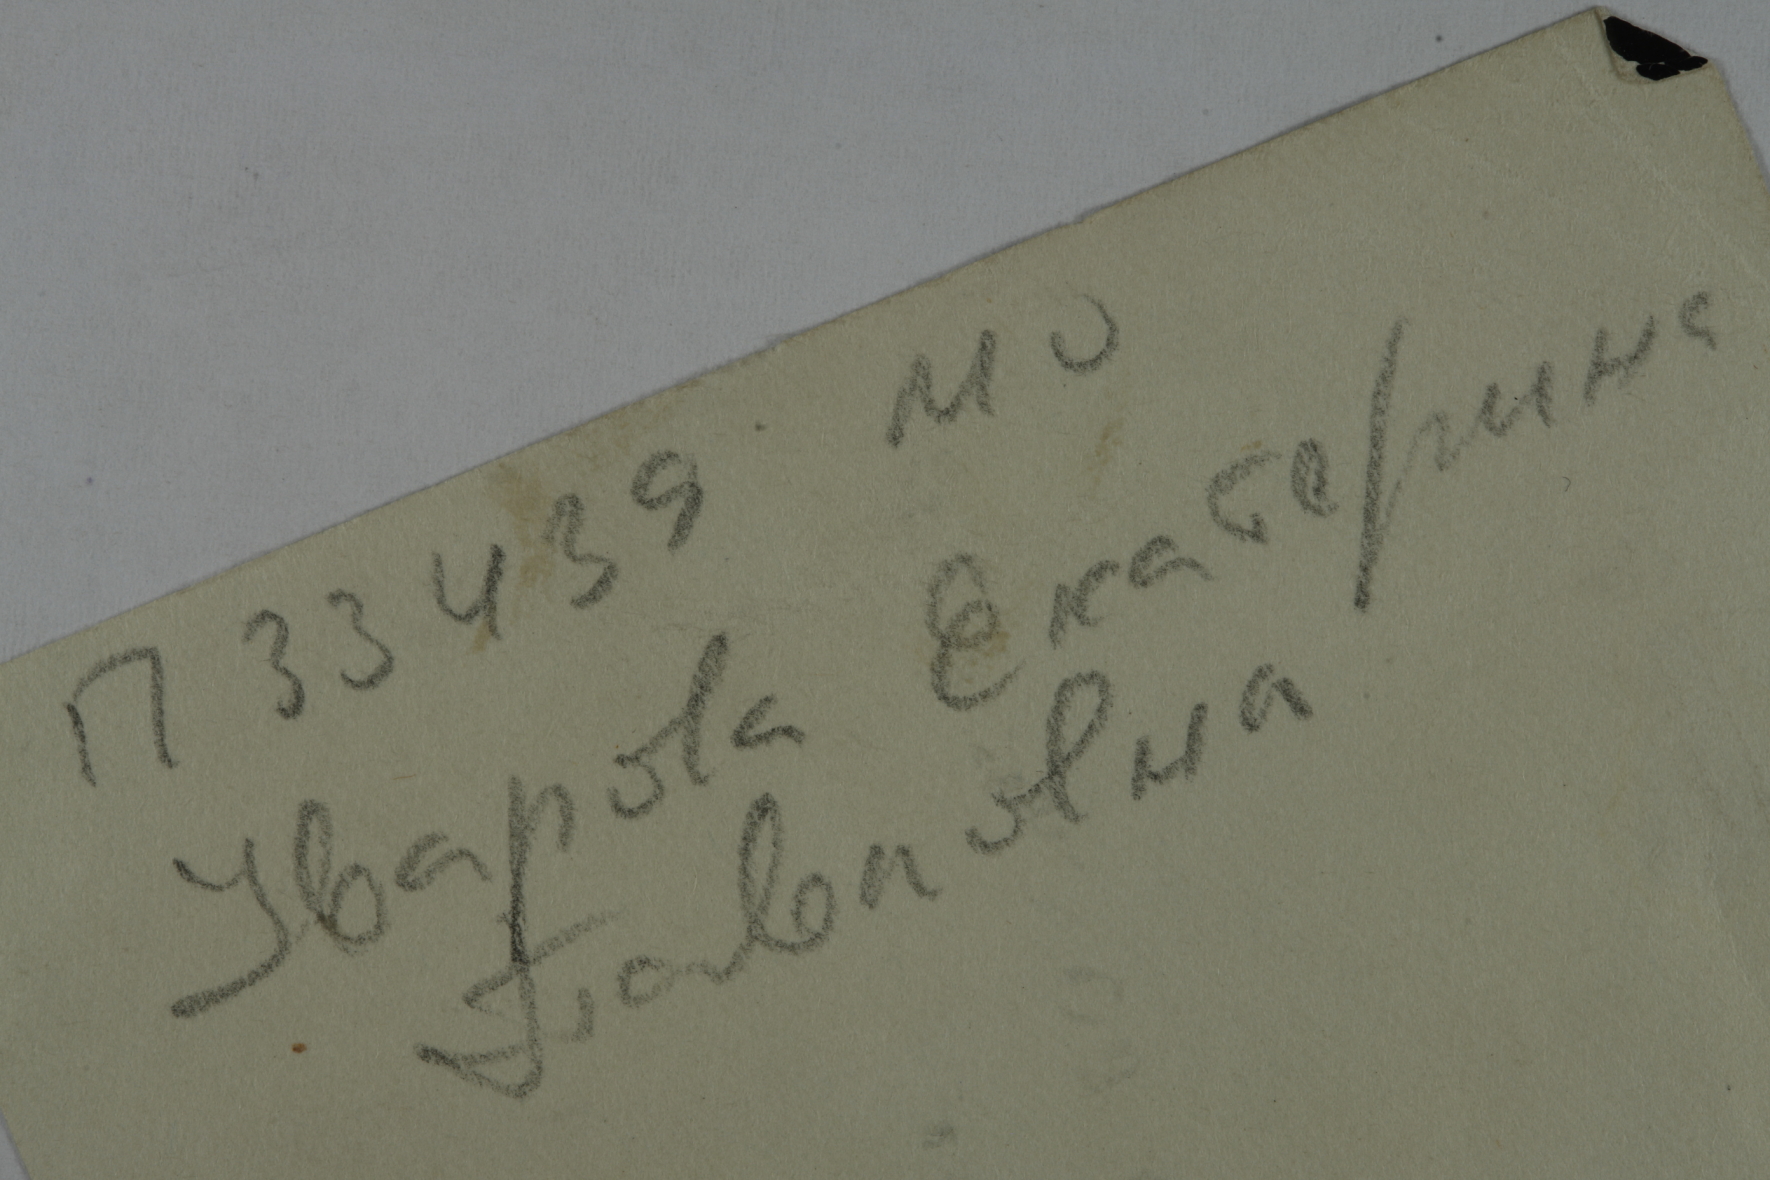 П 33439 МО
Уварова Екатерина
Павловна